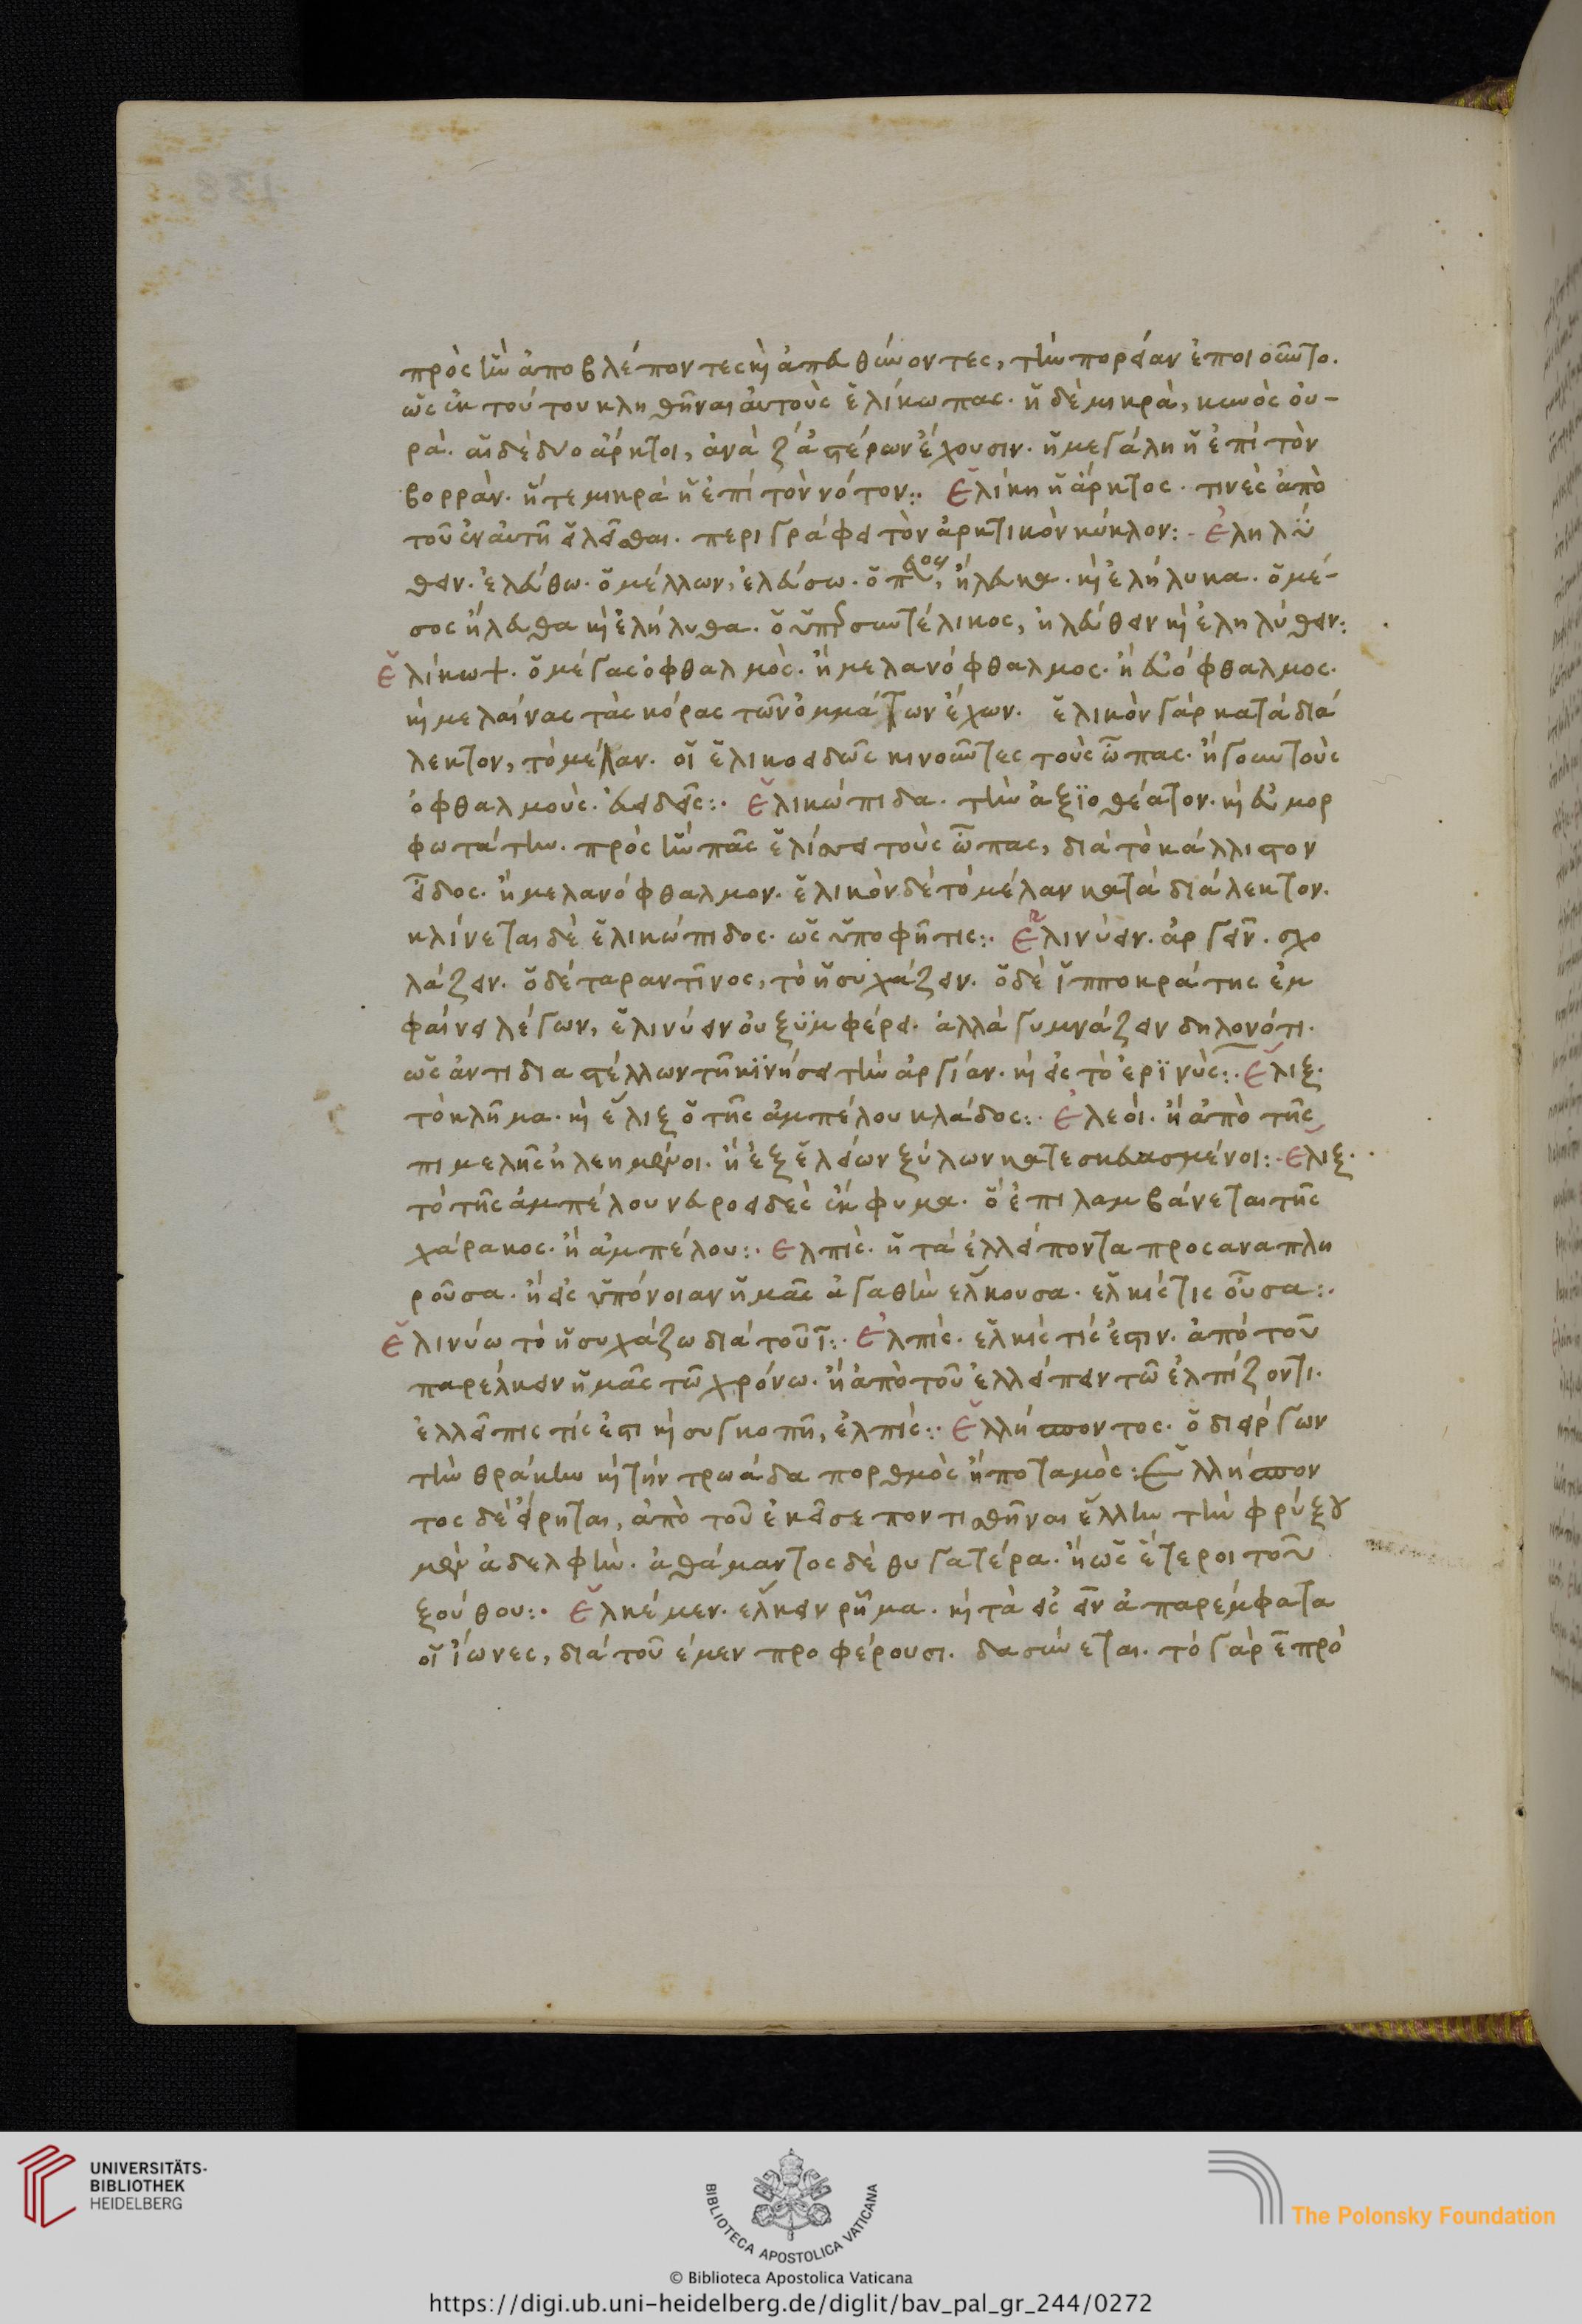 πρὸς ἣν ἀποβλέποντες κ̀ ἀπευθύνοντες, τὴν πορείαν ἐποιοῦντο.
ὡς ἐκ τούτου κληθῆναι αὐτοὺς ἑλίκωπας. ἡ δὲ μικρὰ, κυνὸς οὐ-
ρά. αἱ δὲ δύο ἄρκτοι, ἀνὰ ζ ἀστέρων ἔχουσιν. ἡ μεγάλη ἡ ἐπὶ τὸν
βορρὰν. ἥτε μικρὰ ἡ ἐπὶ τὸν νότον:. Ἑλίκη ἡ ἄρκτος. τινὲς ἀπὸ
τοῦ ἐν αὐτῆ εἱλεῖσθαι. περιγράφει τὸν ἀρκτικὸν κύκλον:. Ἐληλύ
θειν. ἐλεύθω. ὁ μέλλων, ἐλεύσω. ὁ π, ἤλευκα. κ̀ ἐλήλυκα. ὁ μέ-
σος ἤλευθα κ̀ ἐλήλυθα. ὁ ὑπερσυντέλικος, ἠλεύθειν κ̀ ἐληλύθειν:
Ἑλίκωψ. ὁ μέγας ὀφθαλμὸς. ἢ μελανόφθαλμος. ἢ εὐόφθαλμος.
κ̀ μελαίνας τὰς κόρας τῶν ὀμμάτων ἔχων. ἑλικὸν γὰρ κατὰ διά
λεκτον, τὸ μέλαν. οἱ ἑλικοειδῶς κινοῦντες τοὺς ὦπας. ἤγουν τοὺς
ὀφθαλμούς. εὐειδεῖς:. Ἑλικώπιδα. τὴν ἀξϊοθέατον. κ̀ εὐμορ
φωτάτην. πρὸς ἣν πᾶς ἑλίσσει τοὺς ὦπας, διὰ τὸ κάλλιστον
εἶδος. ἢ μελανόφθαλμον. ἑλικὸν δὲ τὸ μέλαν κατὰ διάλεκτον.
κλίνεται δὲ ἑλικώπιδος. ὡς ὑποφῆτις:. Ἑλινύειν. ἀργεῖν. σχο
λάζειν. ὁ δὲ ταραντῖνος, τὸ ἡσυχάζειν. ὁ δὲ ἱπποκράτης ἐμ
φαίνει λέγων, ἑλινύειν οὐ ξϋμφέρει. ἀλλὰ γυμνάζειν δηλονότι.
ὡς ἀντιδιαστέλλων τῆ κϊνήσει τὴν ἀργίαν. κ̀ εἰς τὸ ἐρϊνύς:. Ἕλιξ.
τὸ κλῆμα. κ̀ ἕλιξ ὁ τῆς ἀμπέλου κλάδος:. Ἐλεόι. ἢ ἀπὸ τῆς
πιμελῆς ἠλειμμένοι. ἢ ἐξ ἑλείων ξύλων κατεσκευασμένοι:. Ἕλιξ.
τὸ τῆς ἀμπέλου νευροειδὲς ἔκφυμα. ὃ ἐπιλαμβάνεται τῆς
χάρακος. ἢ ἀμπέλου:. Ελπὶς. ἡ τὰ ἐλλείποντα προσαναπλη
ροῦσα. ἢ εἰς ὑπόνοιαν ἡμᾶς ἀγαθὴν ἕλκουσα. ἑλκίς τις οὖσα:.
Ἑλινύω τὸ ἡσυχάζω διὰ τοῦ ῑ:. Ἐλπὶς. ἑλκὶς τίς ἐστιν. ἀπὸ τοῦ
παρέλκειν ἡμᾶς τῶ χρόνω. ἢ ἀπὸ τοῦ ἐλλείπειν τῶ ἐλπίζοντι.
ἐλλεῖπις τίς ἐστι κ̀ συγκοπῆ, ἐλπίς:. Ἑλλήσποντος. ὁ διείργων
τὴν θράκην κ̀ τὴν τρωάδα πορθμὸς ἢ ποταμὸς: Ἑλλήσπον
τος δὲ εἴρηται, ἀπὸ τοῦ ἐκεῖσε ποντισθῆναι ἕλλην τὴν φρύξου
μὲν ἀδελφὴν. ἀθάμαντος δὲ θυγατέρα. ἢ ὡς ἕτεροι τοῦ
ξούθου:. Ἑλκέμεν. ἕλκειν ρῆμα. κ̀ τὰ εἰς ειν ἀπαρέμφατα
οἱ ἴωνες, διὰ τοῦ έμεν προφέρουσι. δασύνεται. τὸ γὰρ ε̄ πρὸ
UNIVERSITÄTS-
BIBLIOTHEK
HEIDELBERG
BIBLIOTECA APOSTOLICA VATICANA
The Polonsky Foundation
© Biblioteca Apostolica Vaticana
https://digi.ub.uni-heidelberg.de/diglit/bav_pal_gr_244/0272